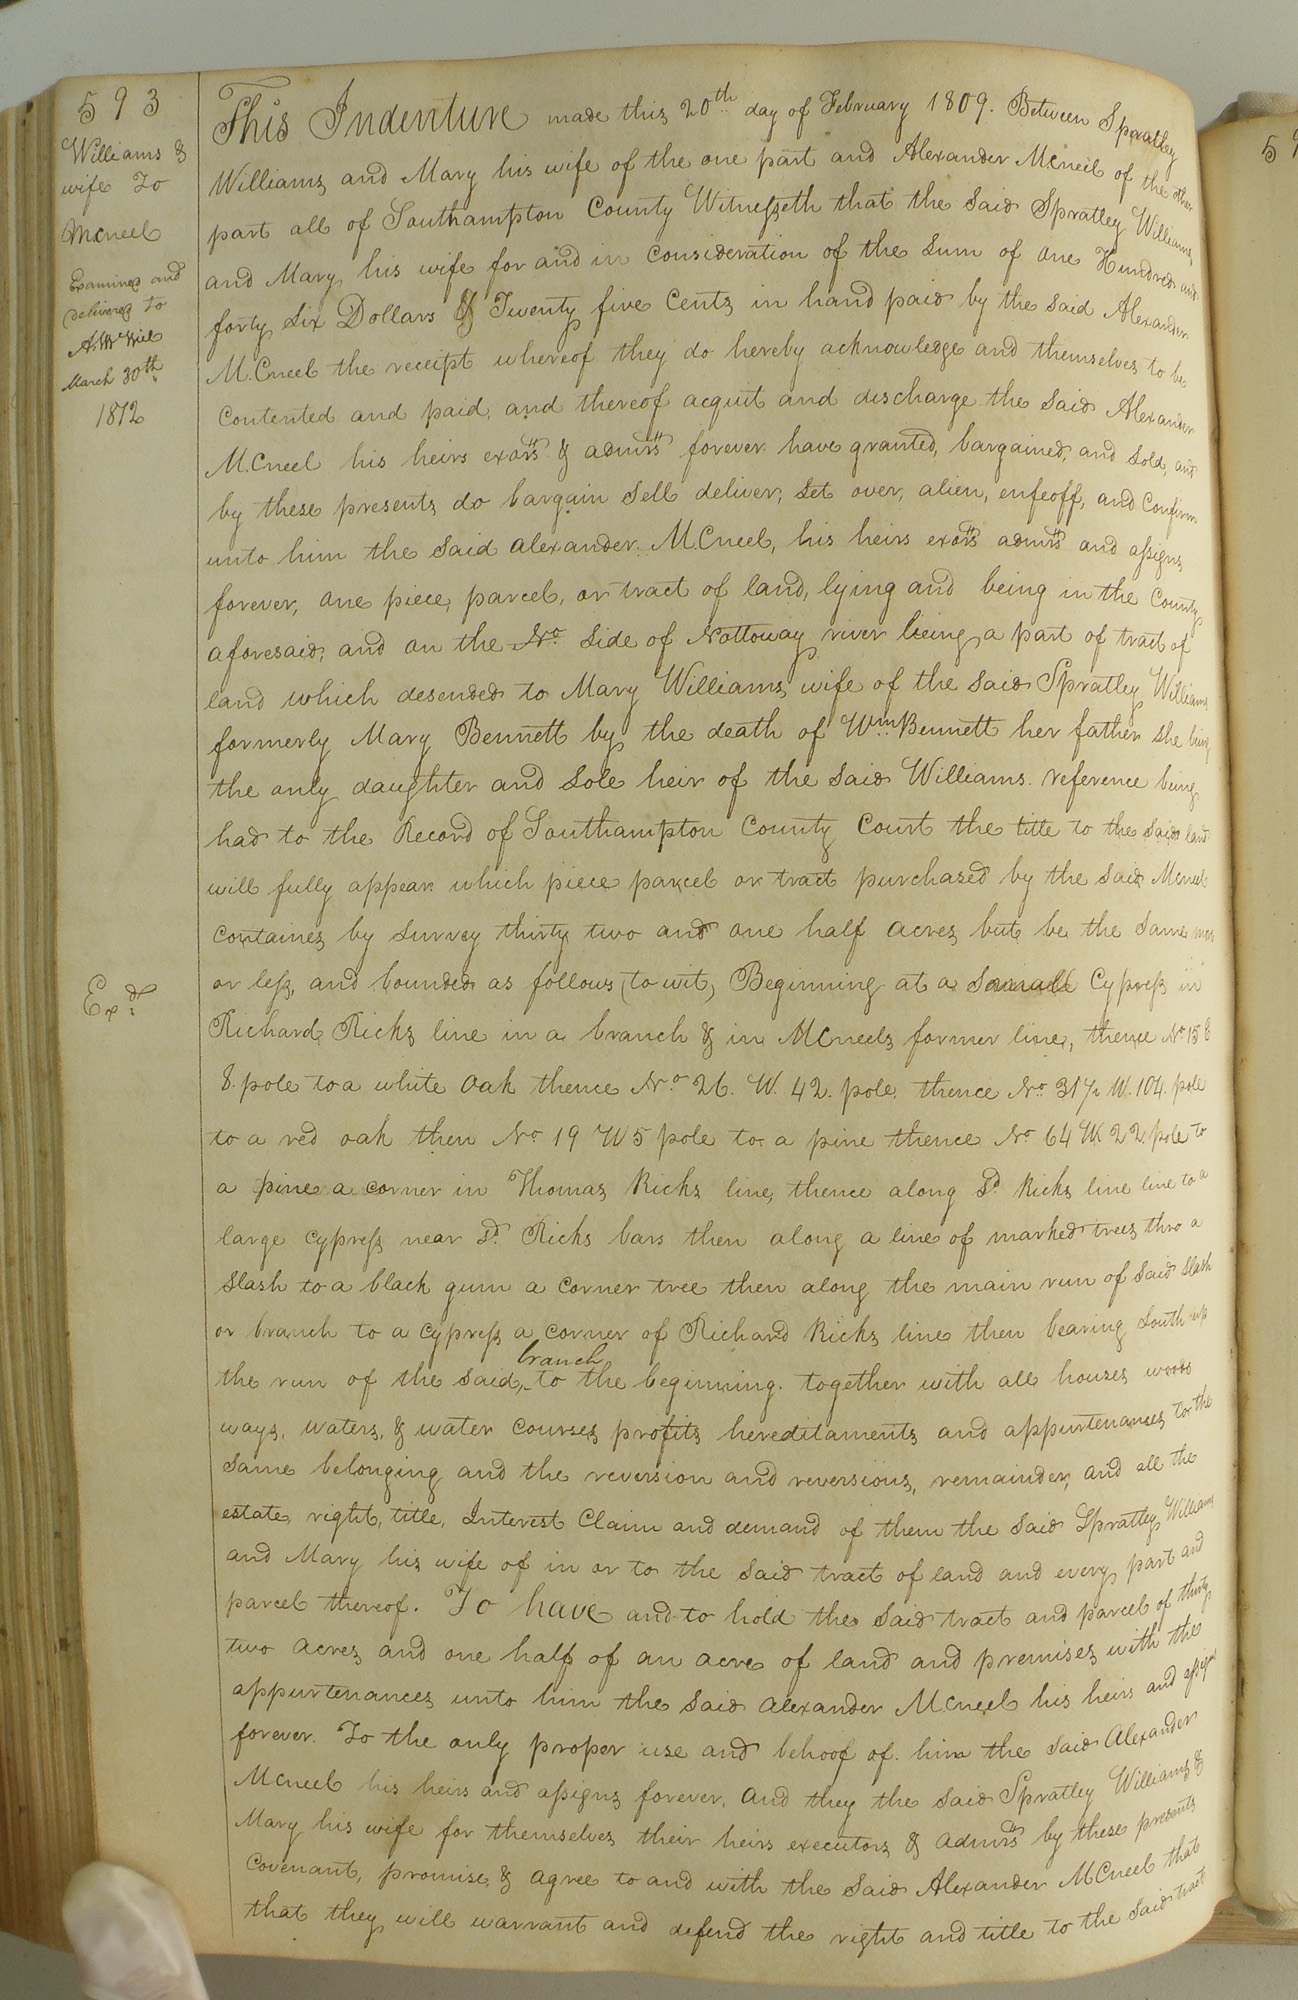 593
Williams &
wife To
Mcneel
Examined and
delivered to
A. McNiel
March 30th
1812
Exd
This Indenture made this 20th day of February 1809. Between Spratley
Williams and Mary his wife of the one part and Alexander Mcneil of the other
part all of Southampton County Witnesseth that the said Spratley Williams
and Mary his wife for and in consideration of the sum of one Hundred and
forty six Dollars & Twenty five Cents in hand paid by the said Alexander
M.Cneel the receipt whereof they do hereby acknowledge and themselves to be
contented and paid, and thereof acquit and discharge the said Alexander
M.Cneel his heirs exors & admrs forever have granted, bargained, and sold, and
by these presents do bargain sell deliver, set over, alien, enfeoff, and Confirm
unto him the said alexander M.Cneel, his heirs exors admrs and assigns
forever, one piece, parcel, or tract of land, lying and being in the County
aforesaid, and on the No. side of Nottoway river being a part of tract of
land which desended to Mary Williams wife of the said Spratley Williams
formerly Mary Bennett by the death of Wm Bennett her father she being
the only daughter and sole heir of the said Williams. reference being
had to the Record of Southampton County Court the title to the said land
will fully appear which piece parcel or tract purchased by the said Mcneel
containes by survey thirty two and one half acres but be the same more
or less, and bounded as follows (to wit) Beginning at a Small Cypress in
Richard Ricks line in a branch & in McNeels former line, thence No. 15 E
8. pole to a white oak thence No. 26. W. 42. pole. thence No. 31½ W. 104. pole
to a red oak then No 19 W 5 pole to a pine thence No 64 W 22 pole to
a pine a corner in Thomas Ricks line, thence along Sd. Ricks line line to a
large cypress near Sd. Ricks bars then along a line of marked trees thro a
slash to a black gum a corner tree then along the main run of said slash
or branch to a cypress a corner of Richard Ricks line then bearing South up
the run of the said branch to the beginning. together with all houses woods
ways, waters, & water courses profits hereditaments and appurtenances to the
same belonging and the reversion and reversions, remainder, and all the
estate, right, title, Interest Claim and demand of them the said Spratley Williams
and Mary his wife of in or to the said tract of land and every part and
parcel thereof. To have and to hold the said tract and parcel of thirty
two acres and one half of an acre of land and premises with the
appurtenances unto him the said alexander M.Cneel his heirs and assigns
forever. To the only proper use and behoof of him the said Alexander
Mcneel his heirs and assigns forever. and they the said Spratley Williams &
Mary his wife for themselves their heirs executors & admrs by these presents
Covenant, promise, & agree to and with the said Alexander McCneel that
that they will warrant and defend the right and title to the said tract